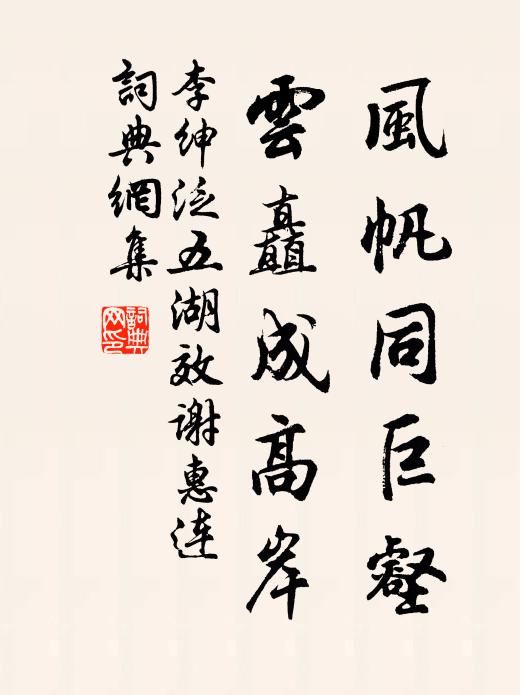 風帆同巨壑
雲矗成高岸
李紳泛五湖效谢惠连
詞典網集
詞典网印